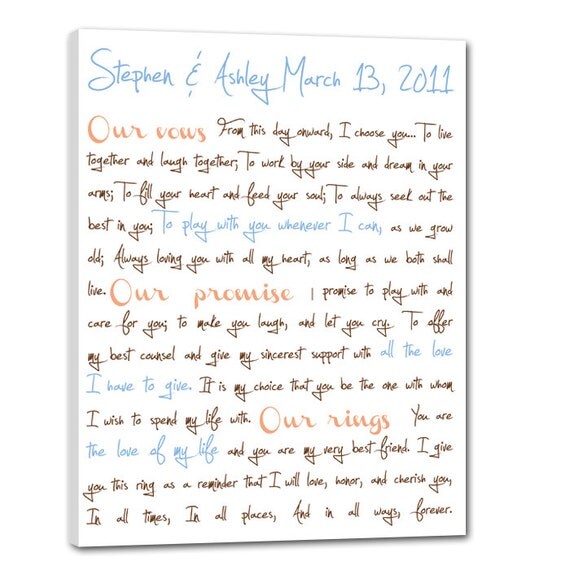 Stephen & Ashley March 13, 2011
Our vows From this day onward, I choose you... To live
together and laugh together; To work by your side and dream in your
arms; To fill your heart and feed your soul; To always seek out the
best in you; To play with you whenever I can, as we grow
old; Always loving you with all my heart, as long as we both shall
live. Our promise I promise to play with and
care for you; to make you laugh, and let you cry. To offer
my best counsel and give my sincerest support with all the love
I have to give. It is my choice that you be the one with whom
I wish to spend my life with. Our rings You are
the love of my life and you are my very best friend. I give
you this ring as a reminder that I will love, honor, and cherish you,
In all times, In all places, And in all ways, forever.